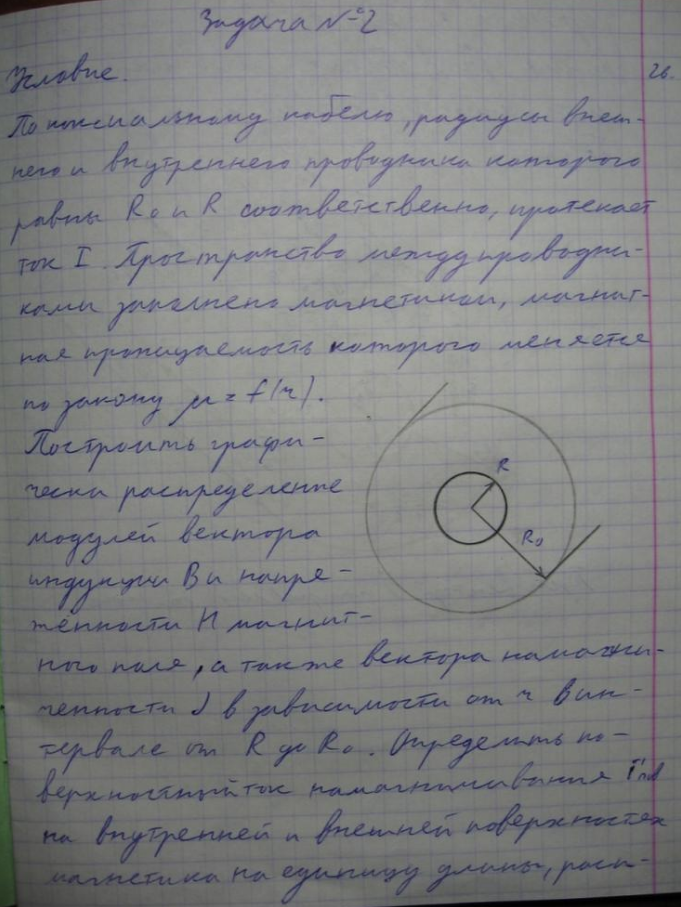 Задача №2
Условие.
2б.
По коксиальному кабелю, радиусы внеш-
него и внутреннего проводника которого
равны R₀ и R соответственно, протекает
ток I. Пространство между проводни-
ками заполнено магнетиком, магнит-
ная проницаемость которого меняется
по закону μ = f(r).
Построить графи-
чески распределение
модулей вектора
индукции B и напря-
женности H магнит-
ного поля, а также вектора намагни-
ченности J в зависимости от r в ин-
тервале от R до R₀. Определить по-
верхностный ток намагничивания
на внутренней и внешней поверхностях
магнетика на единицу длины, расп-
R
R₀